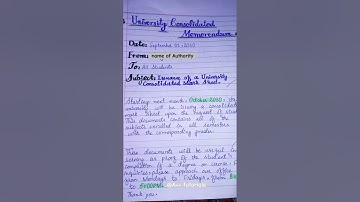 University Consolidated
Memorandum
Date: September 01, 2020
From: name of Authority
To: All Students
Subject: Issuance of a University
Consolidated Mark Sheet.
Starting next month, October 2020, the
university will be issuing a consolidated
mark sheet upon the request of
This documents contains all of the
subjects enrolled in all semesters
with the corresponding grades.
These documents will be useful
serving as proof of the student's
completion of a degree or course.
requisites, please approach our office
from Mondays to Fridays, from
to 5:00PM.
Thank you.
Tutorials